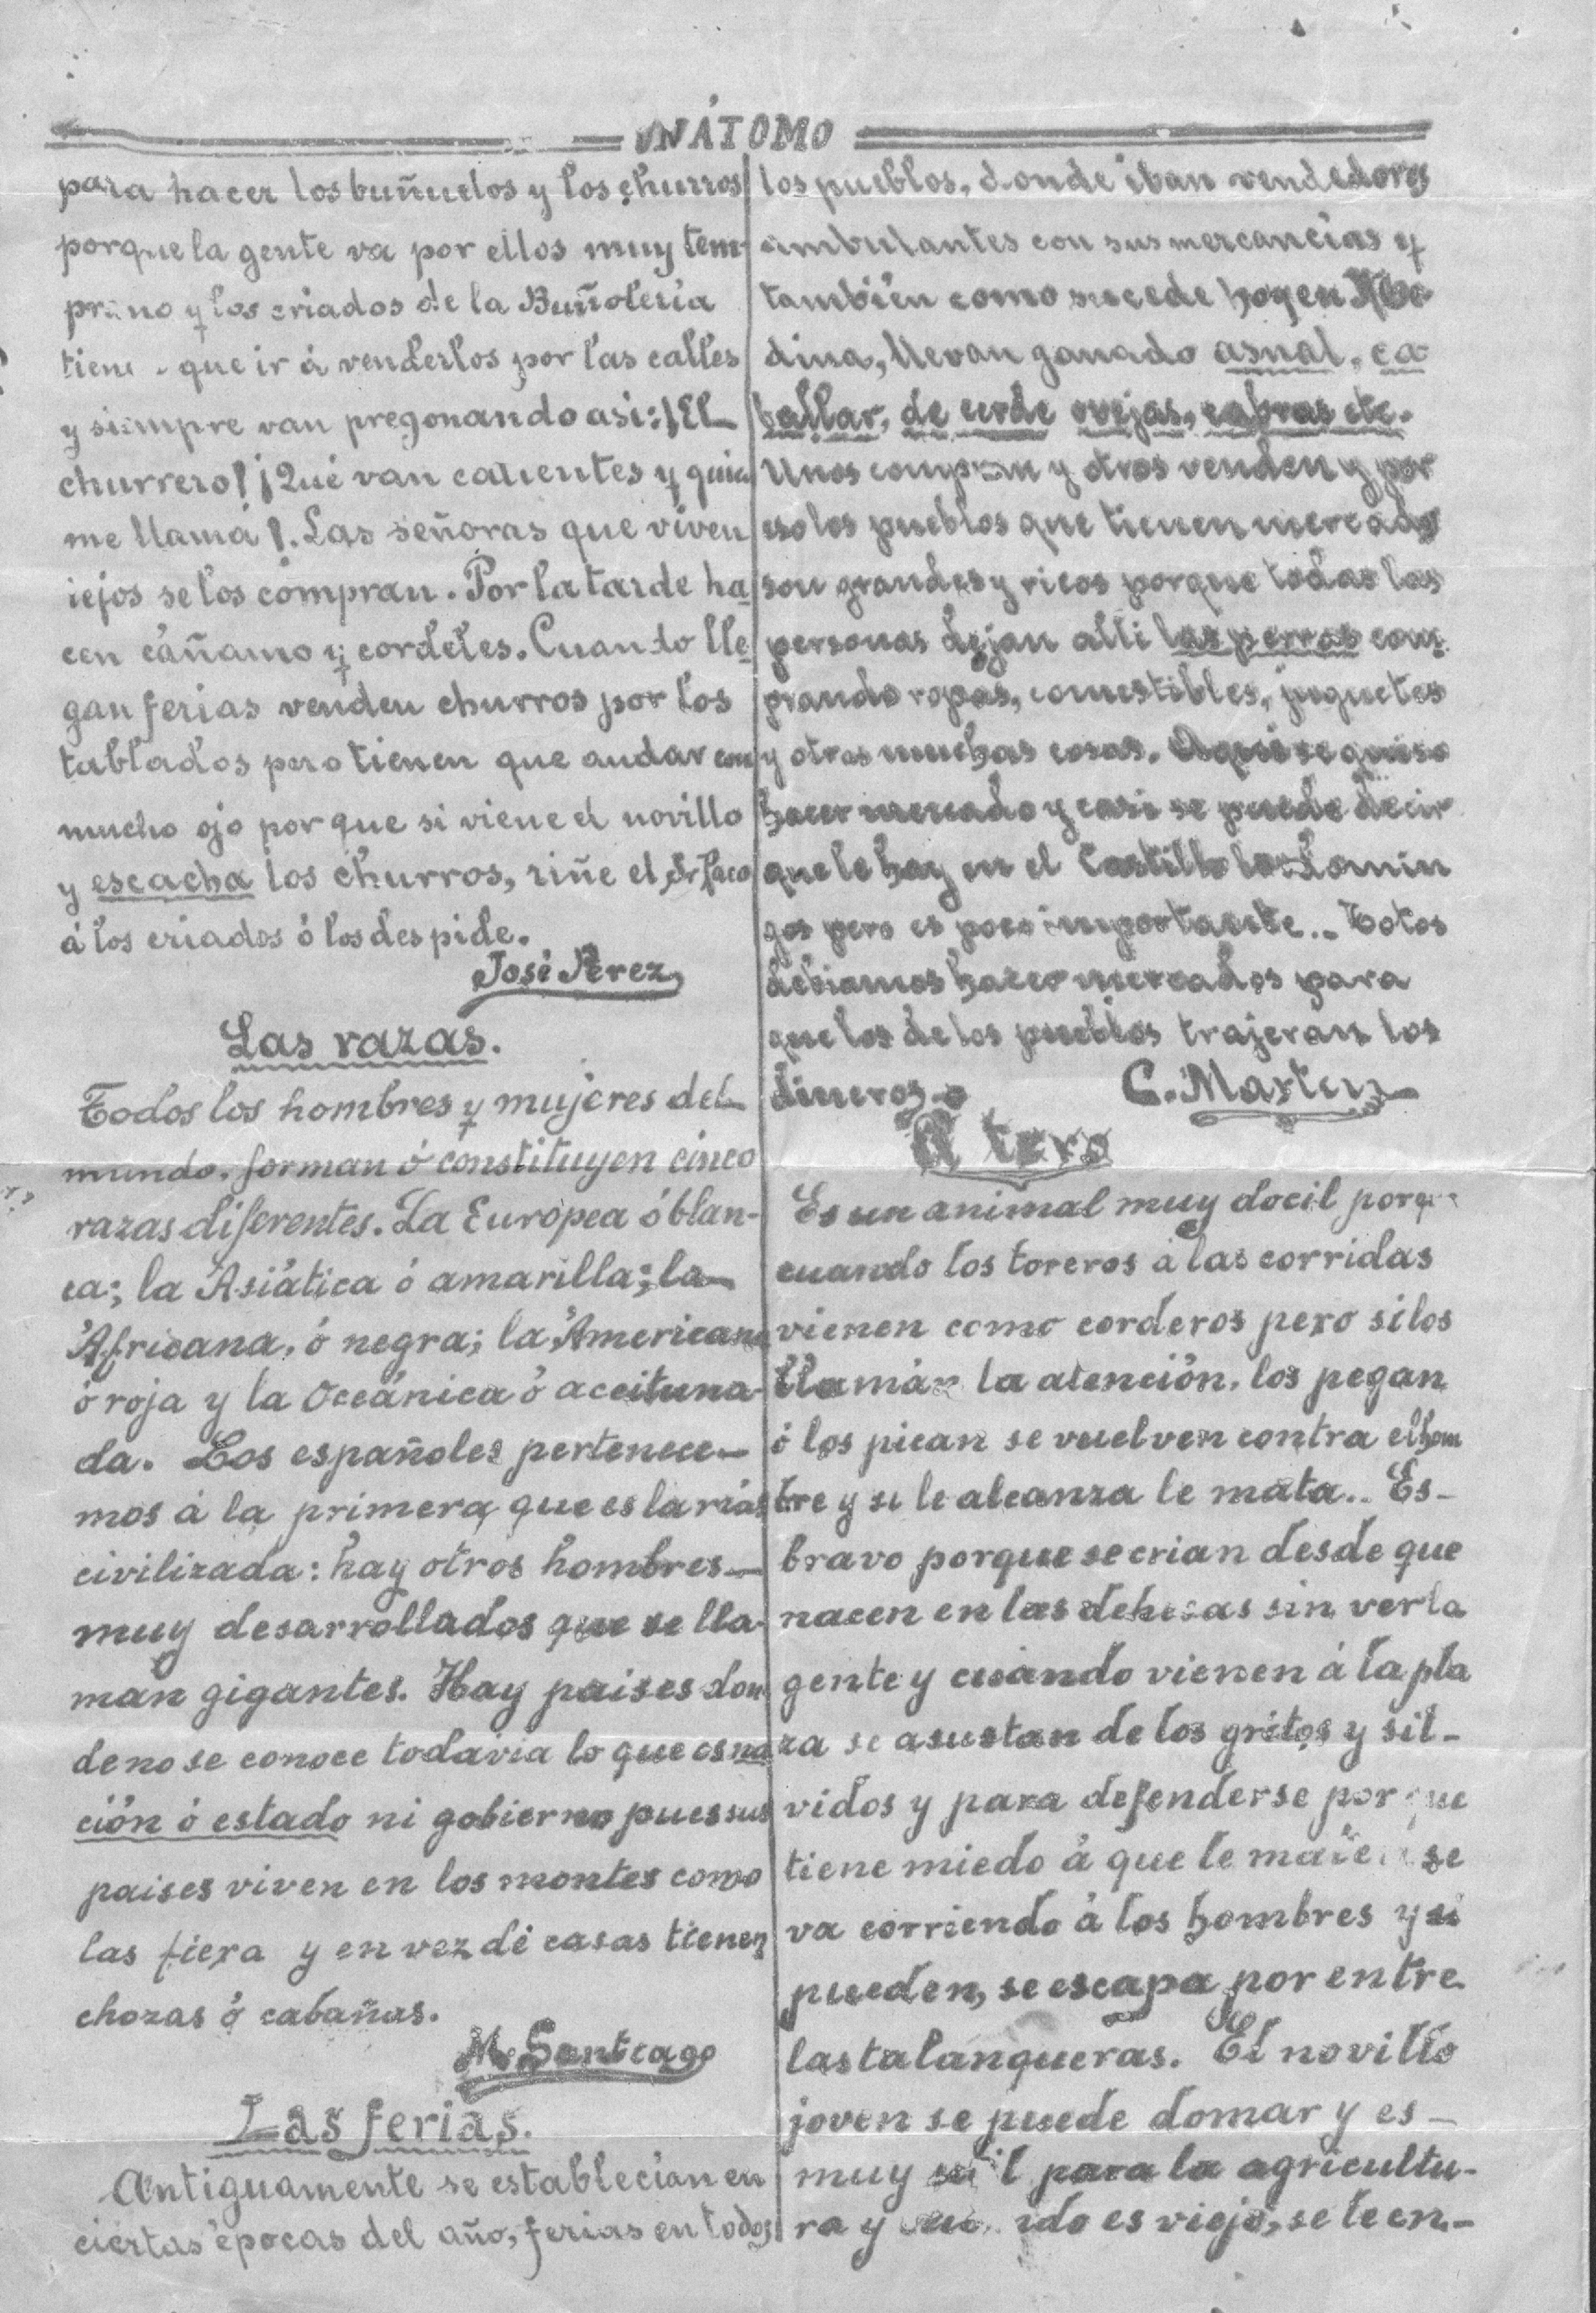 UNÁTOMO
para hacer los buñuelos y los churros
porque la gente va por ellos muy tem-
prano y los criados de la Buñolería
tiene que ir á venderlos por las calles
y siempre van pregonando asi: ¡El
churrero! ¡Qué van calientes y quien
me llama!. Las señoras que viven
lejos se los compran. Por la tarde ha
cen cáñamo y cordeles. Cuando lle
gan ferias venden churros por los
tablados pero tienen que andar con
mucho ojo porque si viene el novillo
y escacha los churros, riñe el Sr Paco
á los criados ó los despide.
José Pérez
Las razas.
Todos los hombres y mujeres del
mundo, forman ó constituyen cinco
razas diferentes. La Europea ó blan-
ca; la Asiática ó amarilla; la
Africana, ó negra; la Americana
ó roja y la Oceánica ó aceituna-
da. Los españoles pertenece-
mos á la primera que es la más
civilizada: hay otros hombres
muy desarrollados que se lla-
man gigantes. Hay paises don
de no se conoce todavía lo que es na
ción ó estado ni gobierno pues sus
paises viven en los montes como
las fiera y en vez de casas tienen
chozas ó cabañas.
M. Santiago
Las ferias.
Antiguamente se establecían en
ciertas épocas del año, ferias en todos
los pueblos, donde iban vendedores
ambulantes con sus mercancías y
también como sucede hoy en Me
dina, llevan ganado asnal, ca
ballar, de cerde ovejas, cabras etc.
Unos compran y otros venden y por
eso los pueblos que tienen mercado
son grandes y ricos porque todas las
personas dejan alli las perras com
prando ropas, comestibles, juguetes
y otras muchas cosas. Aquí se quiso
hacer mercado y casi se puede decir
que le hay en el Castillo los Domin
gos pero es poco importante.. Todos
debiamos hacer mercados para
que los de los pueblos trajeran los
dineros.
C. Martin
El toro
Es un animal muy docil porq
cuando los toreros á las corridas
vienen como corderos pero si los
llaman la atención, los pegan
ó los pican se vuelven contra el hom
bre y si le alcanza le mata.. Es
bravo porque se crian desde que
nacen en las dehesas sin ver la
gente y cuando vienen á la pla
za se asustan de los gritos y sil-
vidos y para defenderse porque
tiene miedo á que le maten se
va corriendo á los hombres y si
pueden, se escapa por entre
las talanqueras. El novillo
joven se puede domar y es
muy util para la agricultu-
ra y cuando es viejo, se le en-